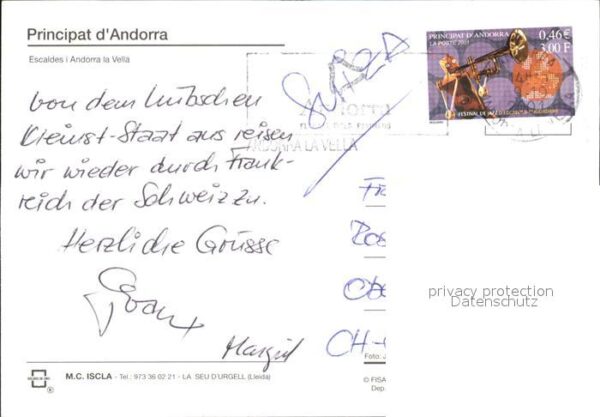 Principat d'Andorra
Escaldes i Andorra la Vella
von dem hübschen
Kleinst-Staat aus reisen
wir wieder durch Frank-
reich der Schweiz zu.
Herzliche Grüsse
Margrit
SUIZA
PRINCIPAT D'ANDORRA
LA POSTE 2001
0,46€
3,00 F
FESTIVAL DE JAZZ D'ESCALDES-ENGORDANY
ANDORRA LA VELLA
CH-
privacy protection
Datenschutz
Foto: J
M.C. ISCLA - Tel.: 973 36 02 21 - LA SEU D'URGELL (Lleida)
© FISA
Dep.